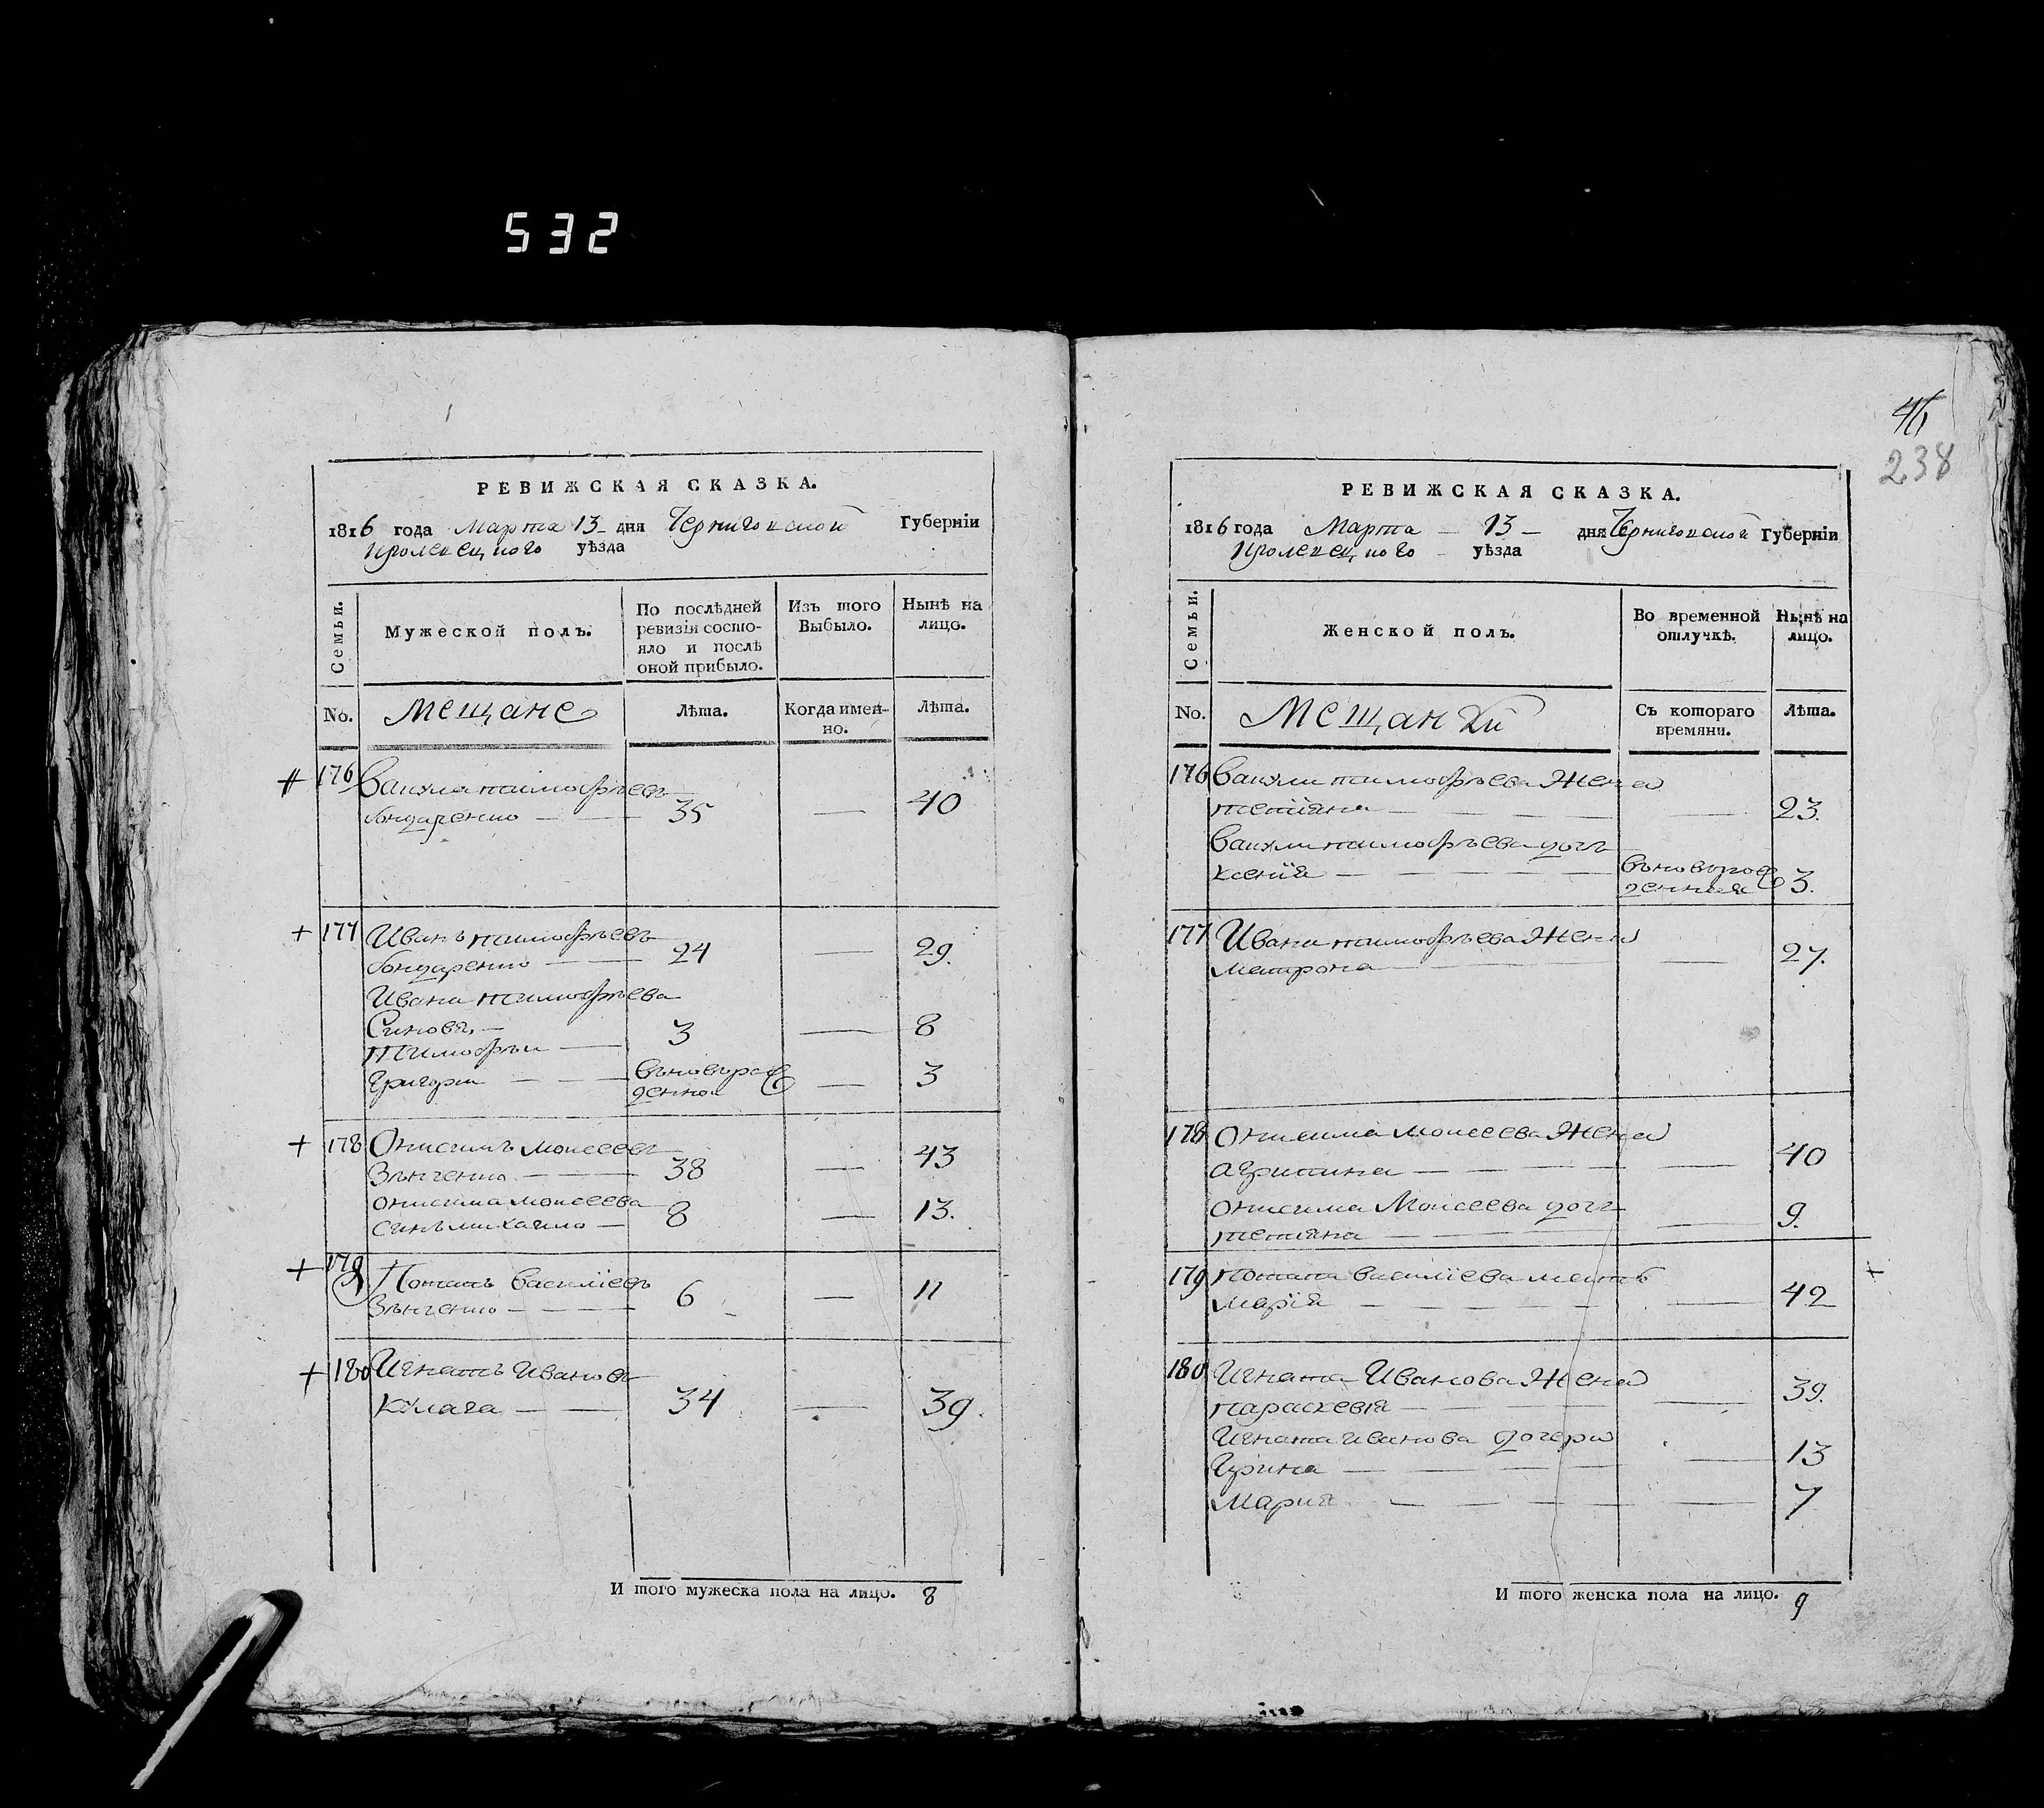 532
РЕВИЖСКАЯ СКАЗКА.
1816 года Марта 13 дня Черниговской Губерніи
Кролевецкого уѣзда
Семьи.
Мужеской полъ.
По послѣдней ревизіи состо-
яло и послѣ
оной прибыло.
Изъ того
Выбыло.
Нынѣ на
лицо.
No.
Мещане
Лѣта.
Когда имен-
но.
Лѣта.
176 Вакула тимофѣевъ
бондаренко 35 — 40
177 Иванъ тимофѣевъ
бондаренко 24 — 29.
Ивана тимофѣева
Синовя,
тимофѣи 3 — 8
григори въновърож
денной — 3
178 Онисимъ моисеевъ
Зѣнченко 38 — 43
онисима моисеева
синъ михаило 8 — 13.
179 Потапъ василіевъ
Зѣнченко 6 — 11
180 Игнатъ Ивановъ
кулага 34 — 39.
И того мужеска пола на лицо. 8
46
238
РЕВИЖСКАЯ СКАЗКА.
1816 года Марта 13 дня Черниговской Губерніи
Кролевецкого уѣзда
Семьи.
Женской полъ.
Во временной
отлучкѣ.
Нынѣ на
лицо.
No.
Мещанки
Съ котораго
времяни.
Лѣта.
176 Вакули тимофѣева Жена
тетіяна — 23.
Вакули тимофѣева дочъ
ксенія въноворож
денная 3.
177 Ивана тимофѣева Жена
матрона — 27.
178 Онисима моисеева Жена
агрипина — 40
Онисима Моисеева дочъ
тетіяна — 9.
179 потапа василіева мать
марія — 42
180 Игната Иванова Жена
параскевія — 39.
Игната иванова дочери
Ирина — 13
Мария — 7
И того женска пола на лицо. 9